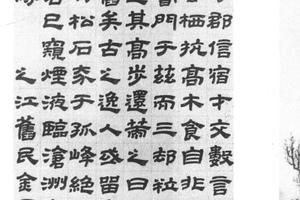 郡信宿才文數言
栖杭高木食自非
門于茲而三邨粒
之其高步還蒂之曰
舊矣古之逸人或留
松石家于孤峰絕
巳窺煙波臨滄洲
之江舊民金